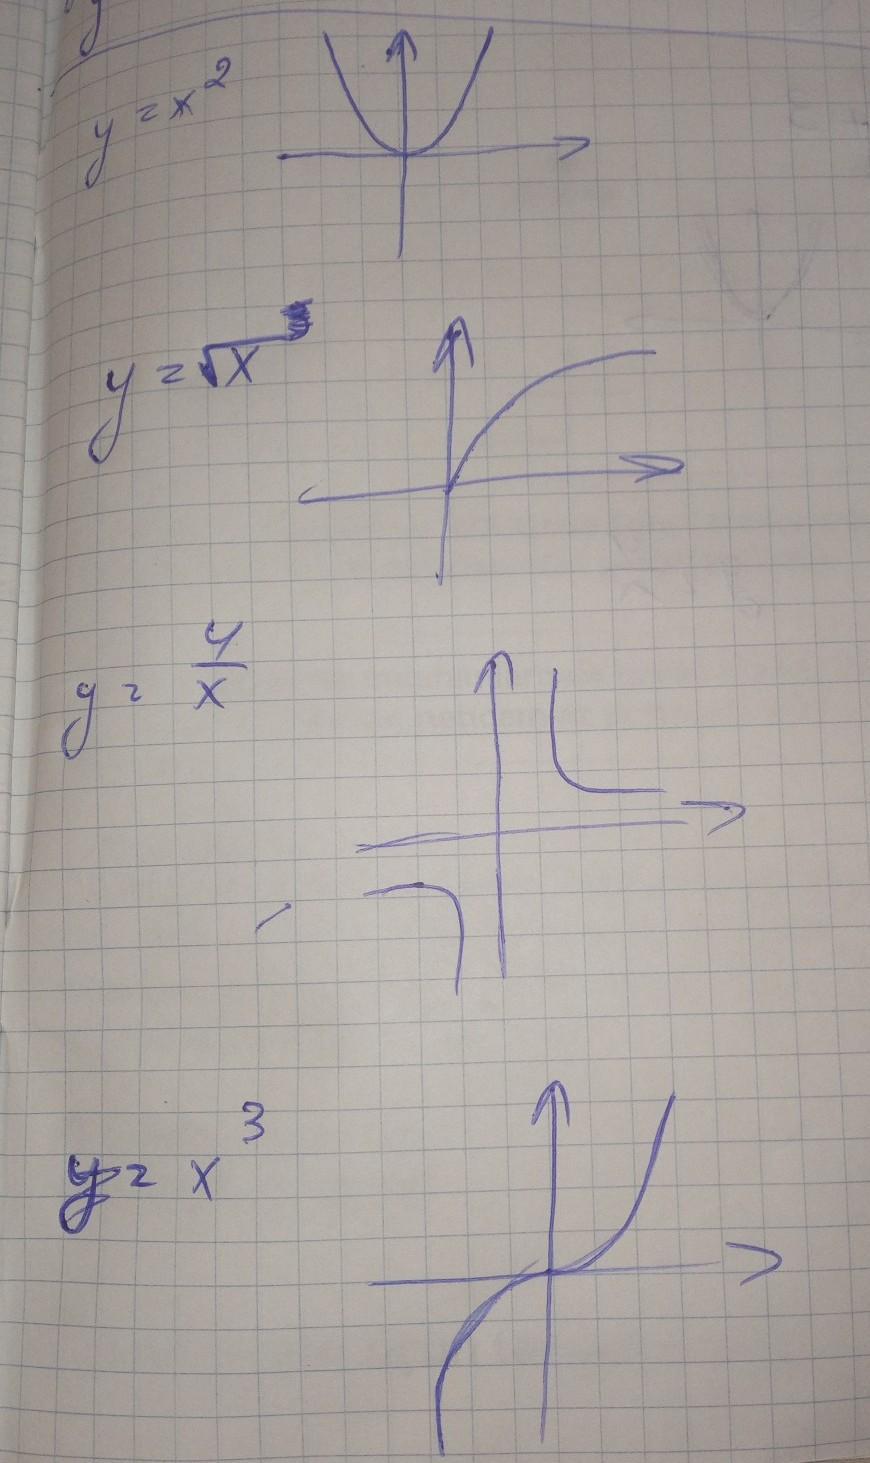 y = x²
y = √x
y = 4/x
y = x³